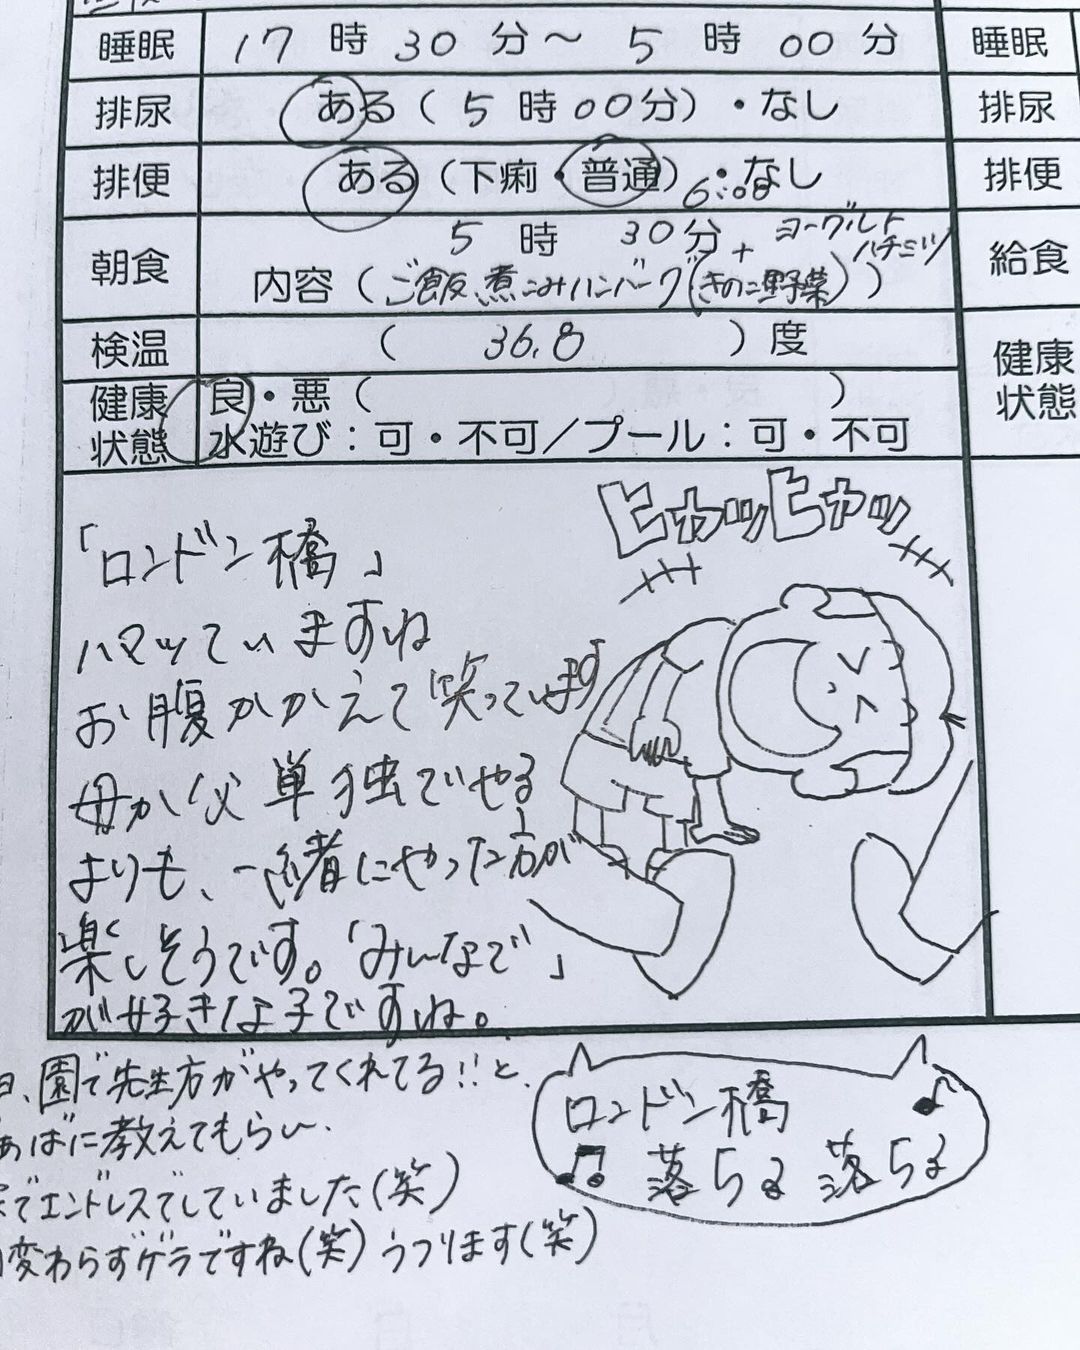 睡眠 17 時 30 分～ 5 時 00 分 睡眠
排尿 ある（ 5 時00分）・なし 排尿
排便 ある（下痢・普通）・なし 排便
6:00
朝食 5 時 30分 + ヨーグルト 給食
ハチミツ
内容（ご飯、煮こみハンバーグ(きのこ野菜)）
検温 （ 36.8 ）度
健康状態 良・悪（ ） 健康状態
水遊び：可・不可／プール：可・不可
ヒャッヒャッ
「ロンドン橋」
ハマッていますね
お腹かかえて笑っています
母か父単独でやる
よりも、一緒にやった方が
楽しそうです。「みんなで」
が好きな子ですね。
日、園で先生方がやってくれてる!!と、
ばぁばに教えてもらい、
でエンドレスでしていました(笑)
変わらずゲラですね(笑) うつります(笑)
ロンドン橋 ♪
♫ 落ちる 落ちる